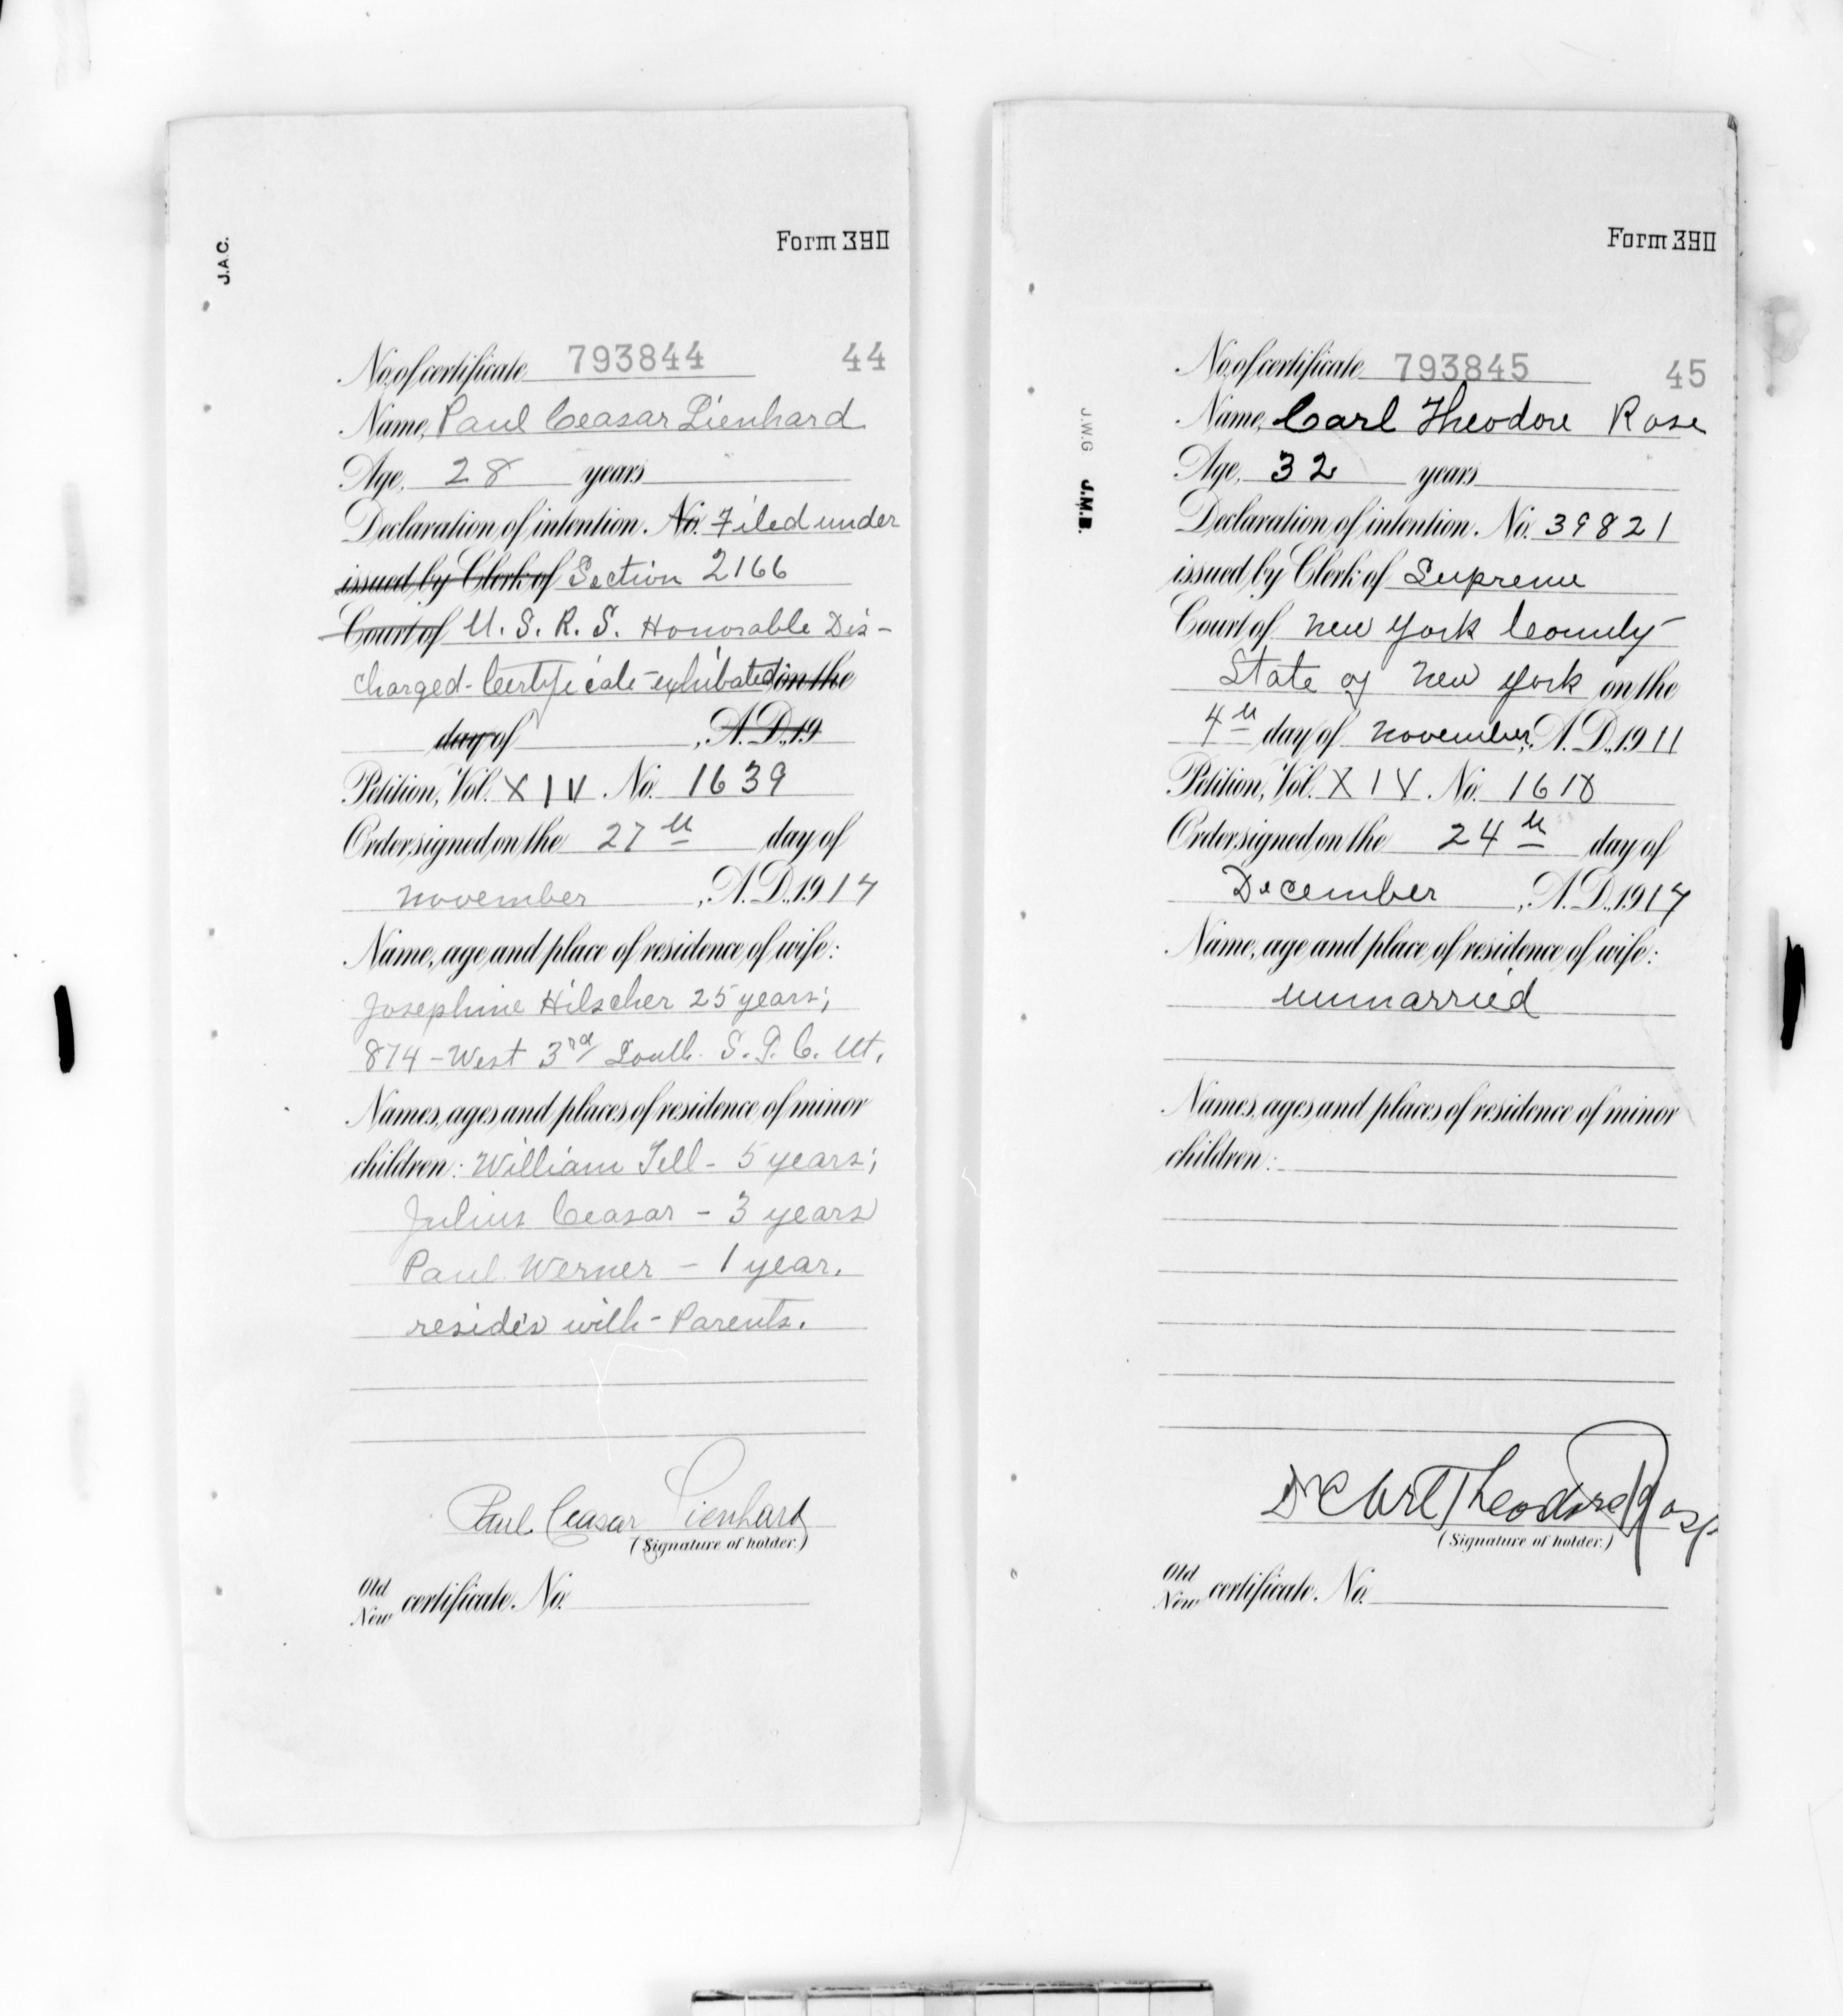 J.A.C.
Form 390
No. of certificate 793844 44
Name, Paul Ceasar Lienhard
Age, 28 years
Declaration of intention. No. Filed under
issued by Clerk of Section 2166
Court of U. S. R. S. Honorable Dis-
charged-Certificate-exhibated on the
day of , A. D., 19
Petition, Vol. XIV. No. 1639
Order signed on the 27th day of
November , A. D., 1917
Name, age and place of residence of wife:
Josephine Hilscher 25 years;
874-West 3rd South. S. L. C. Ut.
Names, ages and places of residence of minor
children: William Tell - 5 years;
Julius Ceasar - 3 years
Paul Werner - 1 year.
resides with-Parents.
Paul Ceasar Lienhard
(Signature of holder.)
Old
New certificate. No.
Form 390
J.W.G J.M.B.
No. of certificate 793845 45
Name, Carl Theodore Rose
Age, 32 years
Declaration of intention. No. 39821
issued by Clerk of Supreme
Court of New York County
State of New York on the
4th day of November, A. D., 1911
Petition, Vol. XIV. No. 1618
Order signed on the 24th day of
December , A. D., 1917
Name, age and place of residence of wife:
Unmarried
Names, ages and places of residence of minor
children:
Dr Carl Theodore Rose
(Signature of holder.)
Old
New certificate. No.